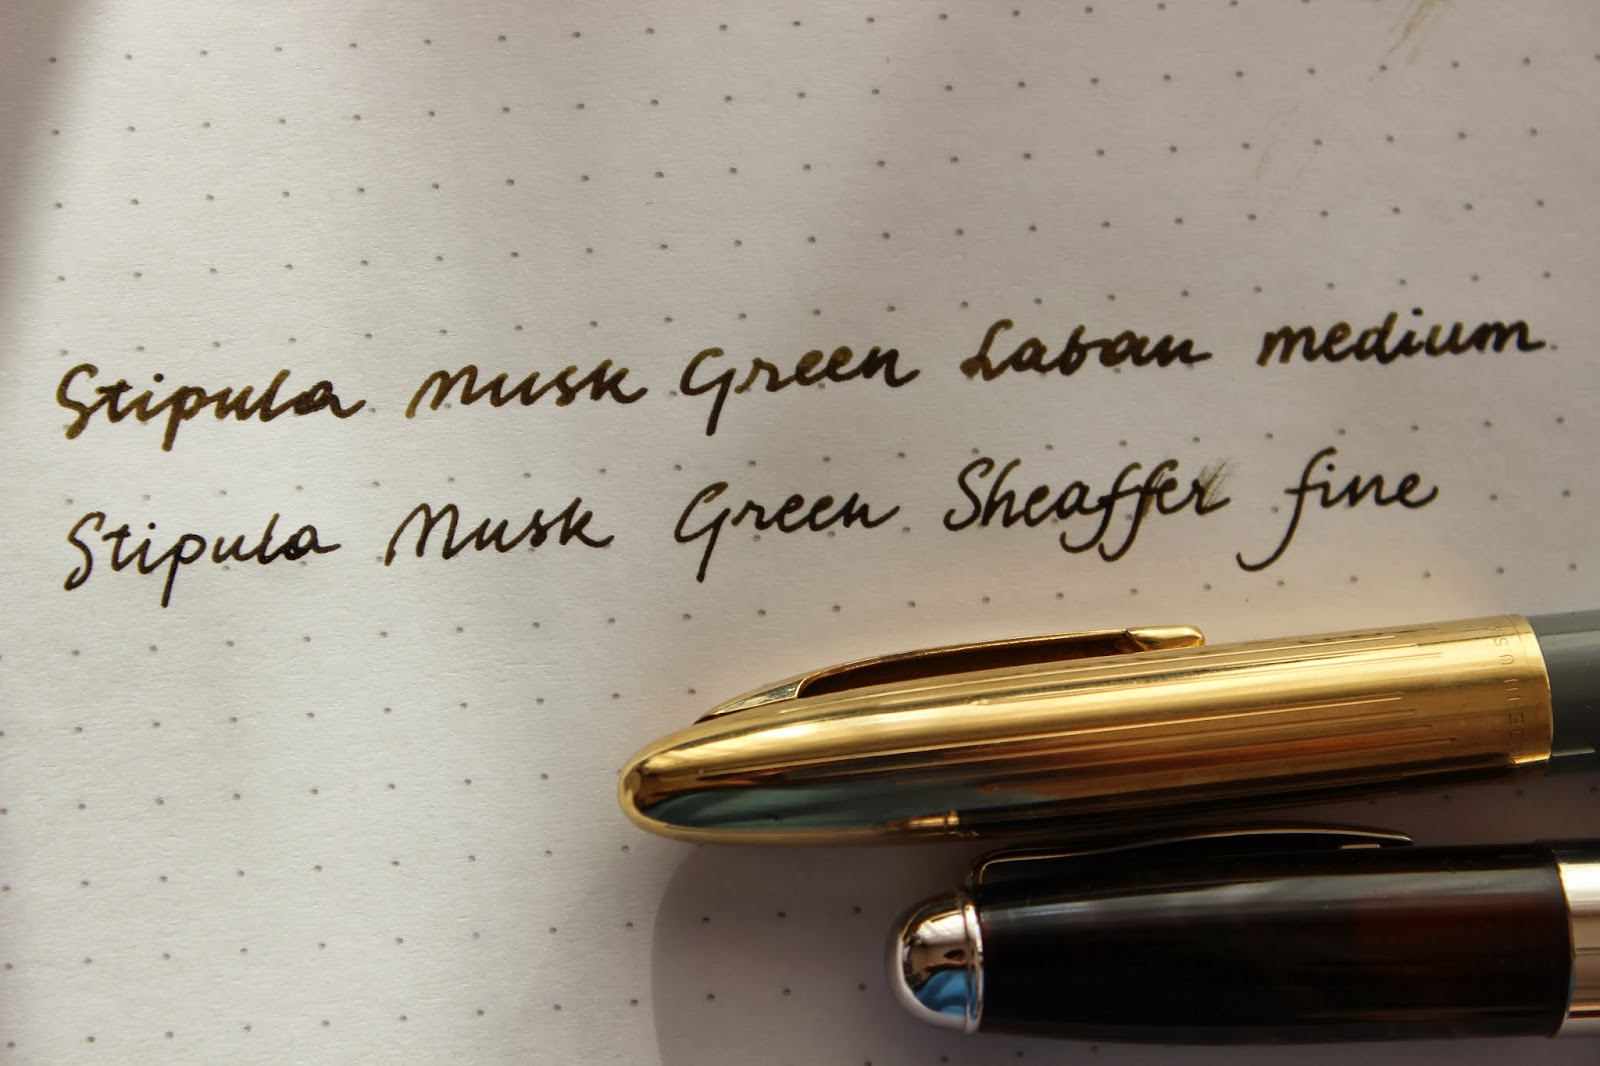 Stipula Musk Green Laban medium
Stipula Musk Green Sheaffer fine
USA